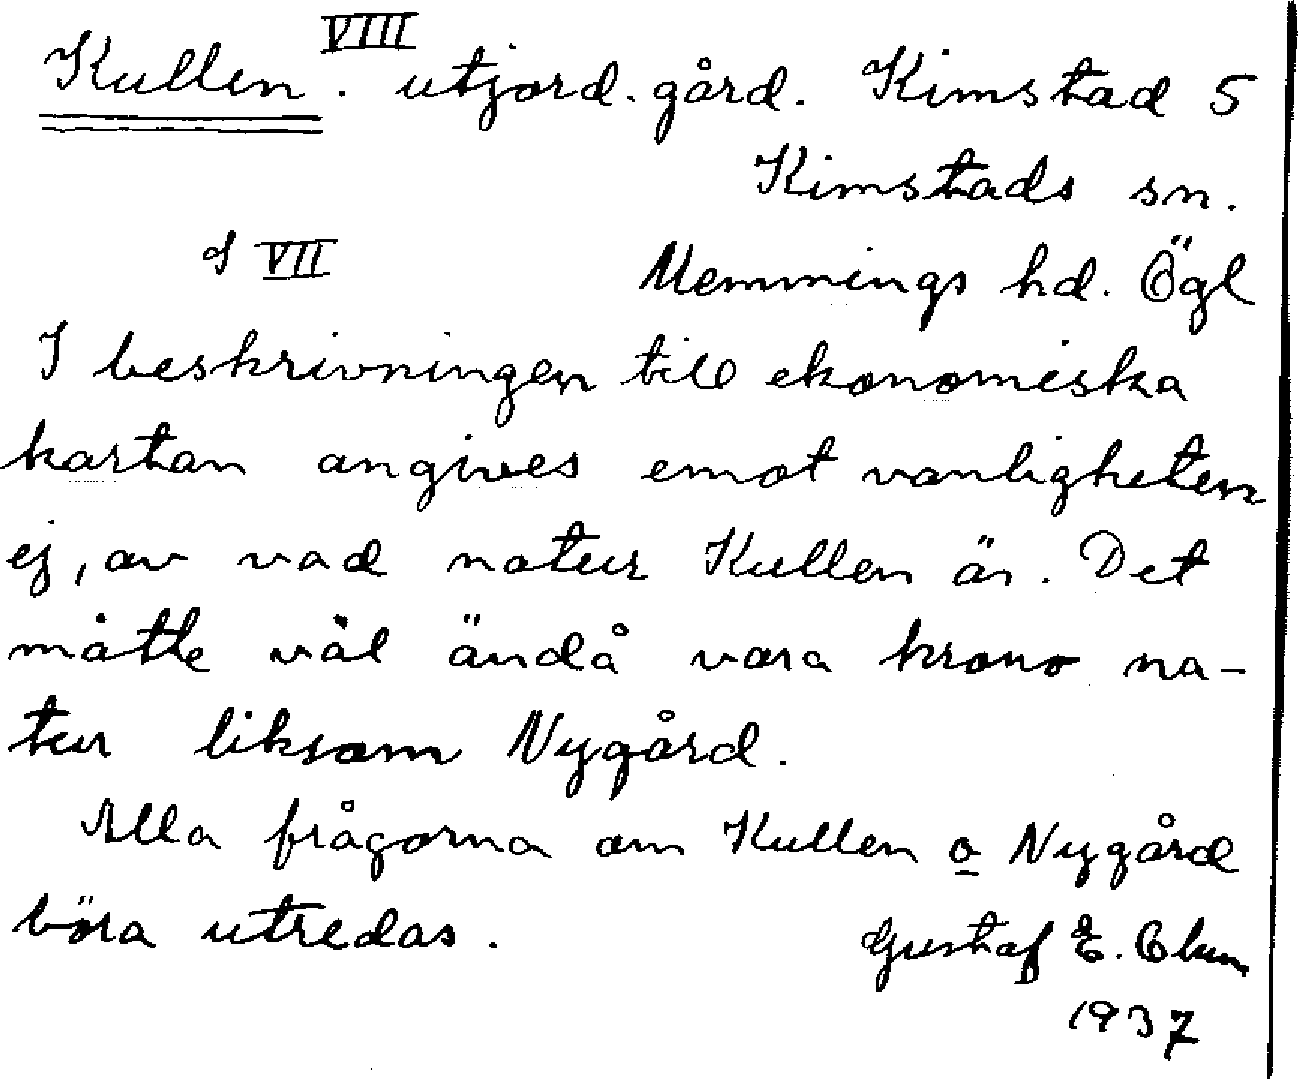 VIII
Kullen. utjord. gård. Kimstad 5
Kimstads sn.
VII Memmings hd. Ögl
I beskrivningen till ekonomiska
kartan angives emot vanligheten
ej, av vad natur Kullen är. Det
måtte väl ändå vara krono na-
tur liksom Nygård.
Alla frågorna om Kullen o Nygård
böra utredas.
Gustaf E.
1937